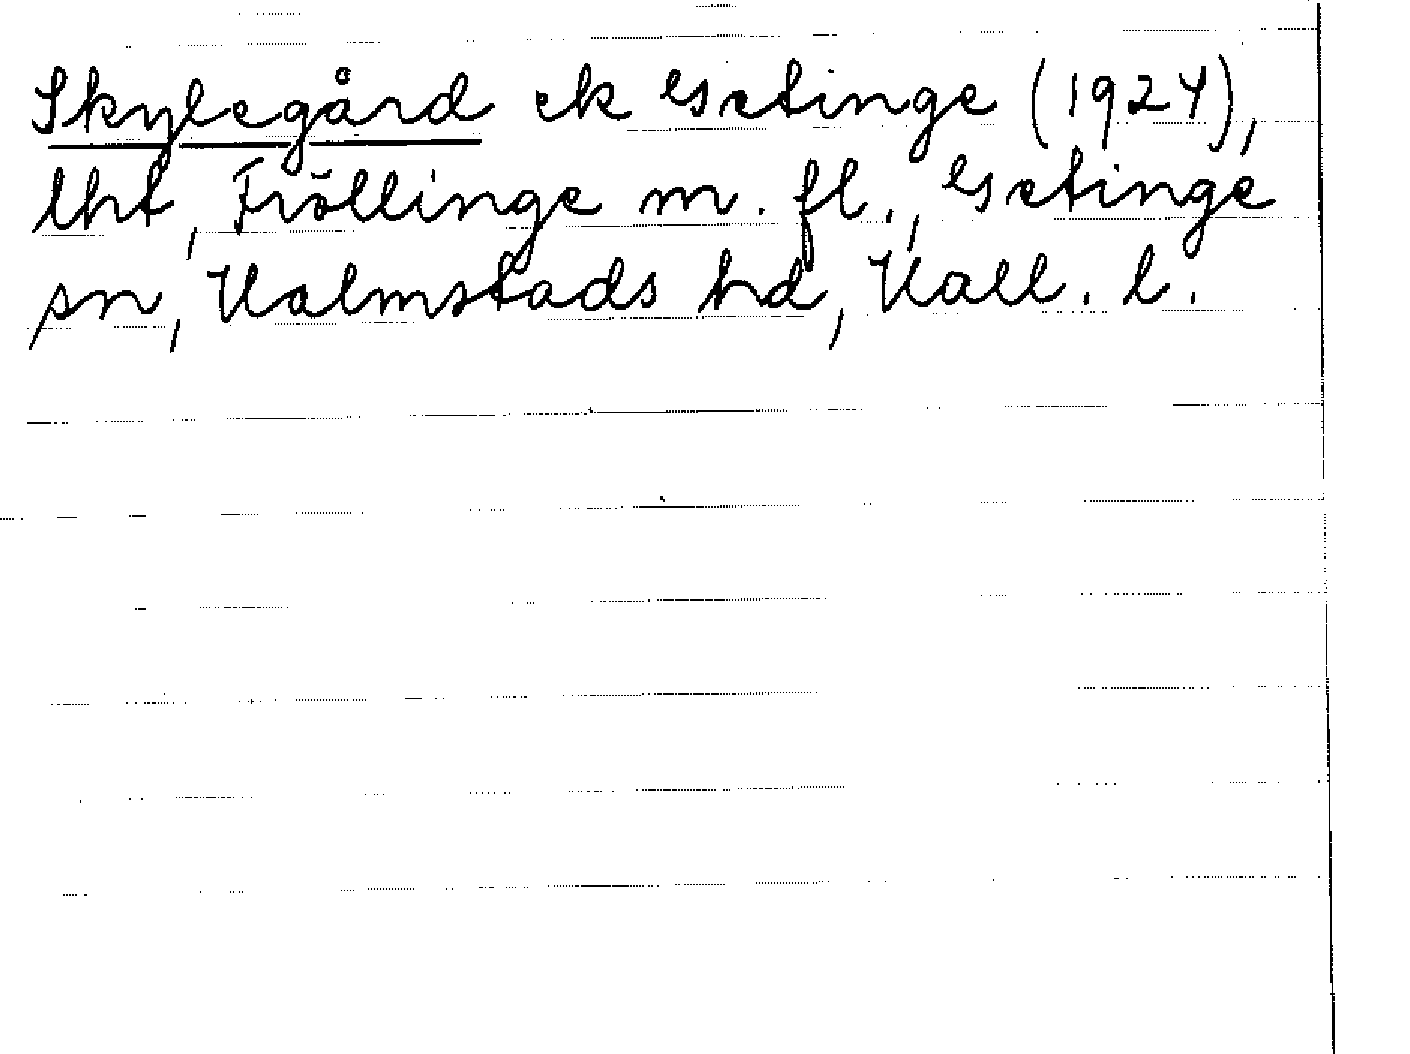 Skylegård ek Getinge (1924),
lht, Fröllinge m. fl., Getinge
sn, Halmstads hd, Hall. l.